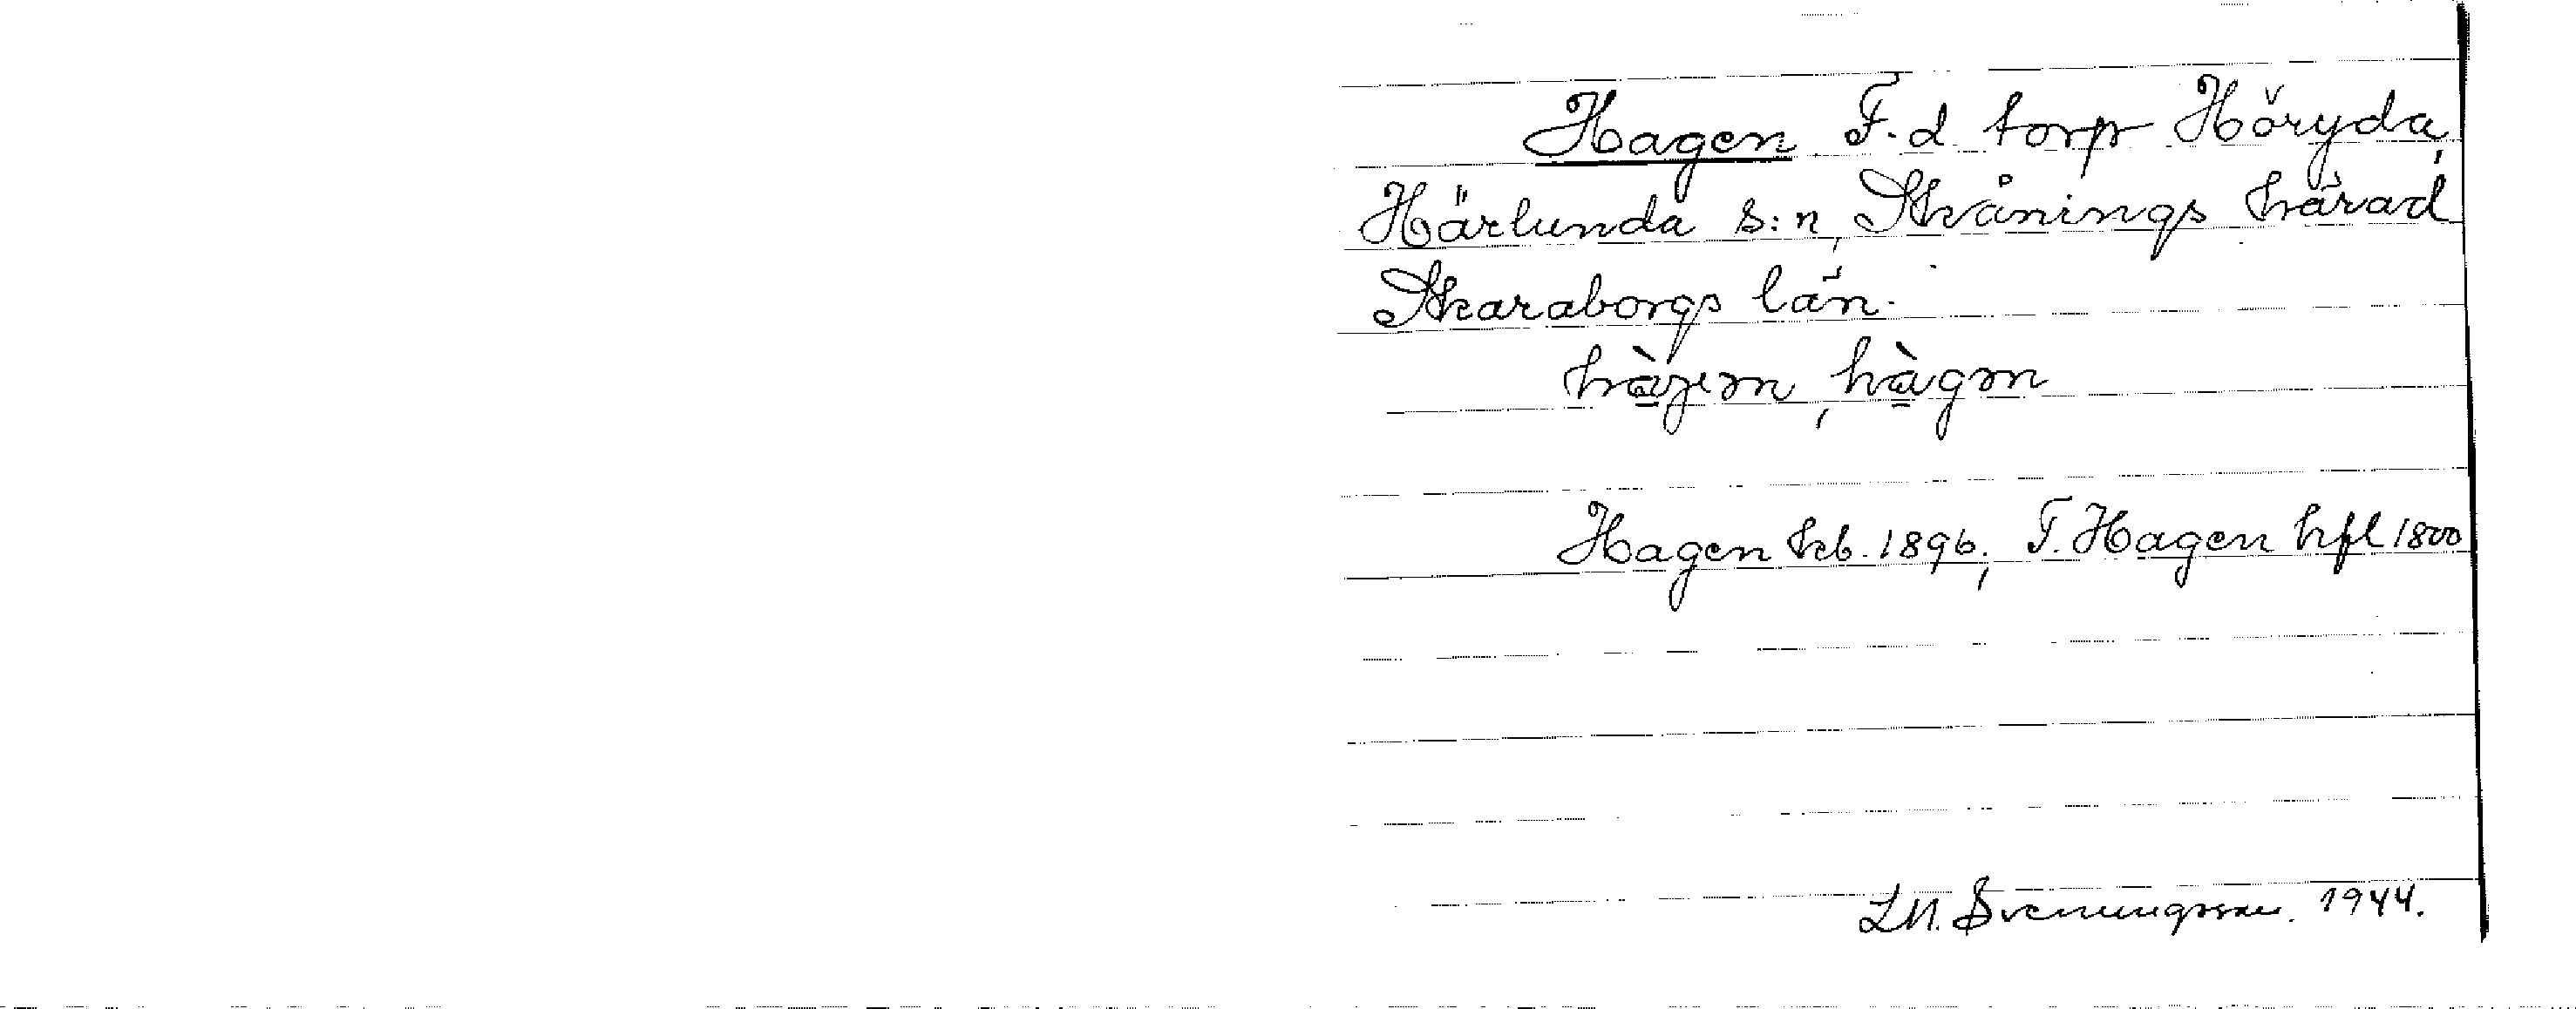 Hagen F. d. torp Höryda,
Härlunda s:n, Skånings härad
Skaraborgs län.
hàgen, hàgən
Hagen kb. 1896; T. Hagen hfl 1800
L.M. Svenungsson. 1944.